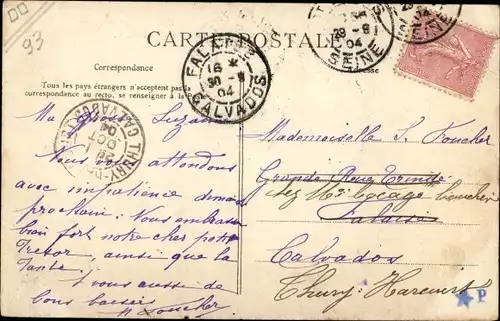 93
CARTE POSTALE
Correspondance
Adresse
Tous les pays étrangers n'acceptent pas la
correspondance au recto, se renseigner à la
FALAISE
16 *
30 -8
04
CALVADOS
29 -8
04
SEINE
29 -8
04
SEINE
THURY-
CALVADOS
04
Ma Suzanne
Nous vous attendons
avec impatience dimanche
prochain; Nous embrassons
bien fort notre cher petit
Tresor, ainsi que la
Tante.
& vous aussi de
bons baisers
Foucher
Mademoiselle S. Foucher
Grande Rue Trinité
chez Mr Lecage boucher
Falaise
Calvados
Thury-Harcourt
P